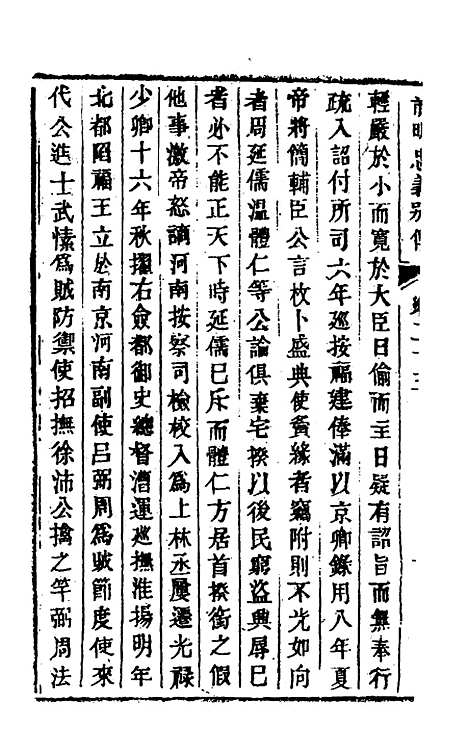 前明忠義別傳
輕嚴於小而寬於大臣日偷而主日疑有詔旨而無奉行
疏入詔付所司六年巡按福建俸滿以京卿錄用八年夏
帝將簡輔臣公言枚卜盛典使夤緣者竊附則不光如向
者周延儒溫體仁等公論俱棄宅揆以後民窮盜興辱已
者必不能正天下時延儒已斥而體仁方居首揆銜之假
他事激帝怒謫河南按察司檢校入為上林丞屢遷光祿
少卿十六年秋擢右僉都御史總督漕運巡撫淮揚明年
北都陷福王立於南京河南副使呂弼周為賊節度使來
代公進士武愫為賊防禦使招撫徐沛公擒之竿弼周法